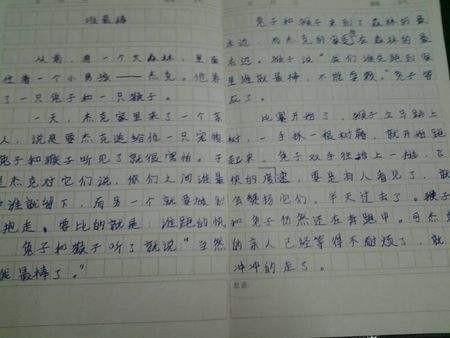 谁最棒
从前，有一个大森林，里面
住着一个小男孩——杰克。他养
了一只兔子和一只猴子。
一天，杰克家里来了一个客
人，说是要杰克送给他一只宠物
兔子和猴子听见了就很害怕。于
是杰克对它们说，你们之间谁最
棒谁就留下，而另一个就要被别
抱走。要比的就是：谁跑的快
兔子和猴子听了就说“当然
我最棒了。”
兔子和猴子来到了森林的最
远，杰克的家在森林的最
末远。猴子说“我们谁先跑到家
里谁就最棒，不能
反了。
比赛开始了，猴子立马跳上
树，一手抓一根树藤，就开始跑
起来。兔子双手往地上一
快的，要是有人看见了，
会他们，半天过去了。猴子
和兔子仍然还在奔跑中。可杰克
的家人已经等得不耐烦了，就
冲冲的走了。